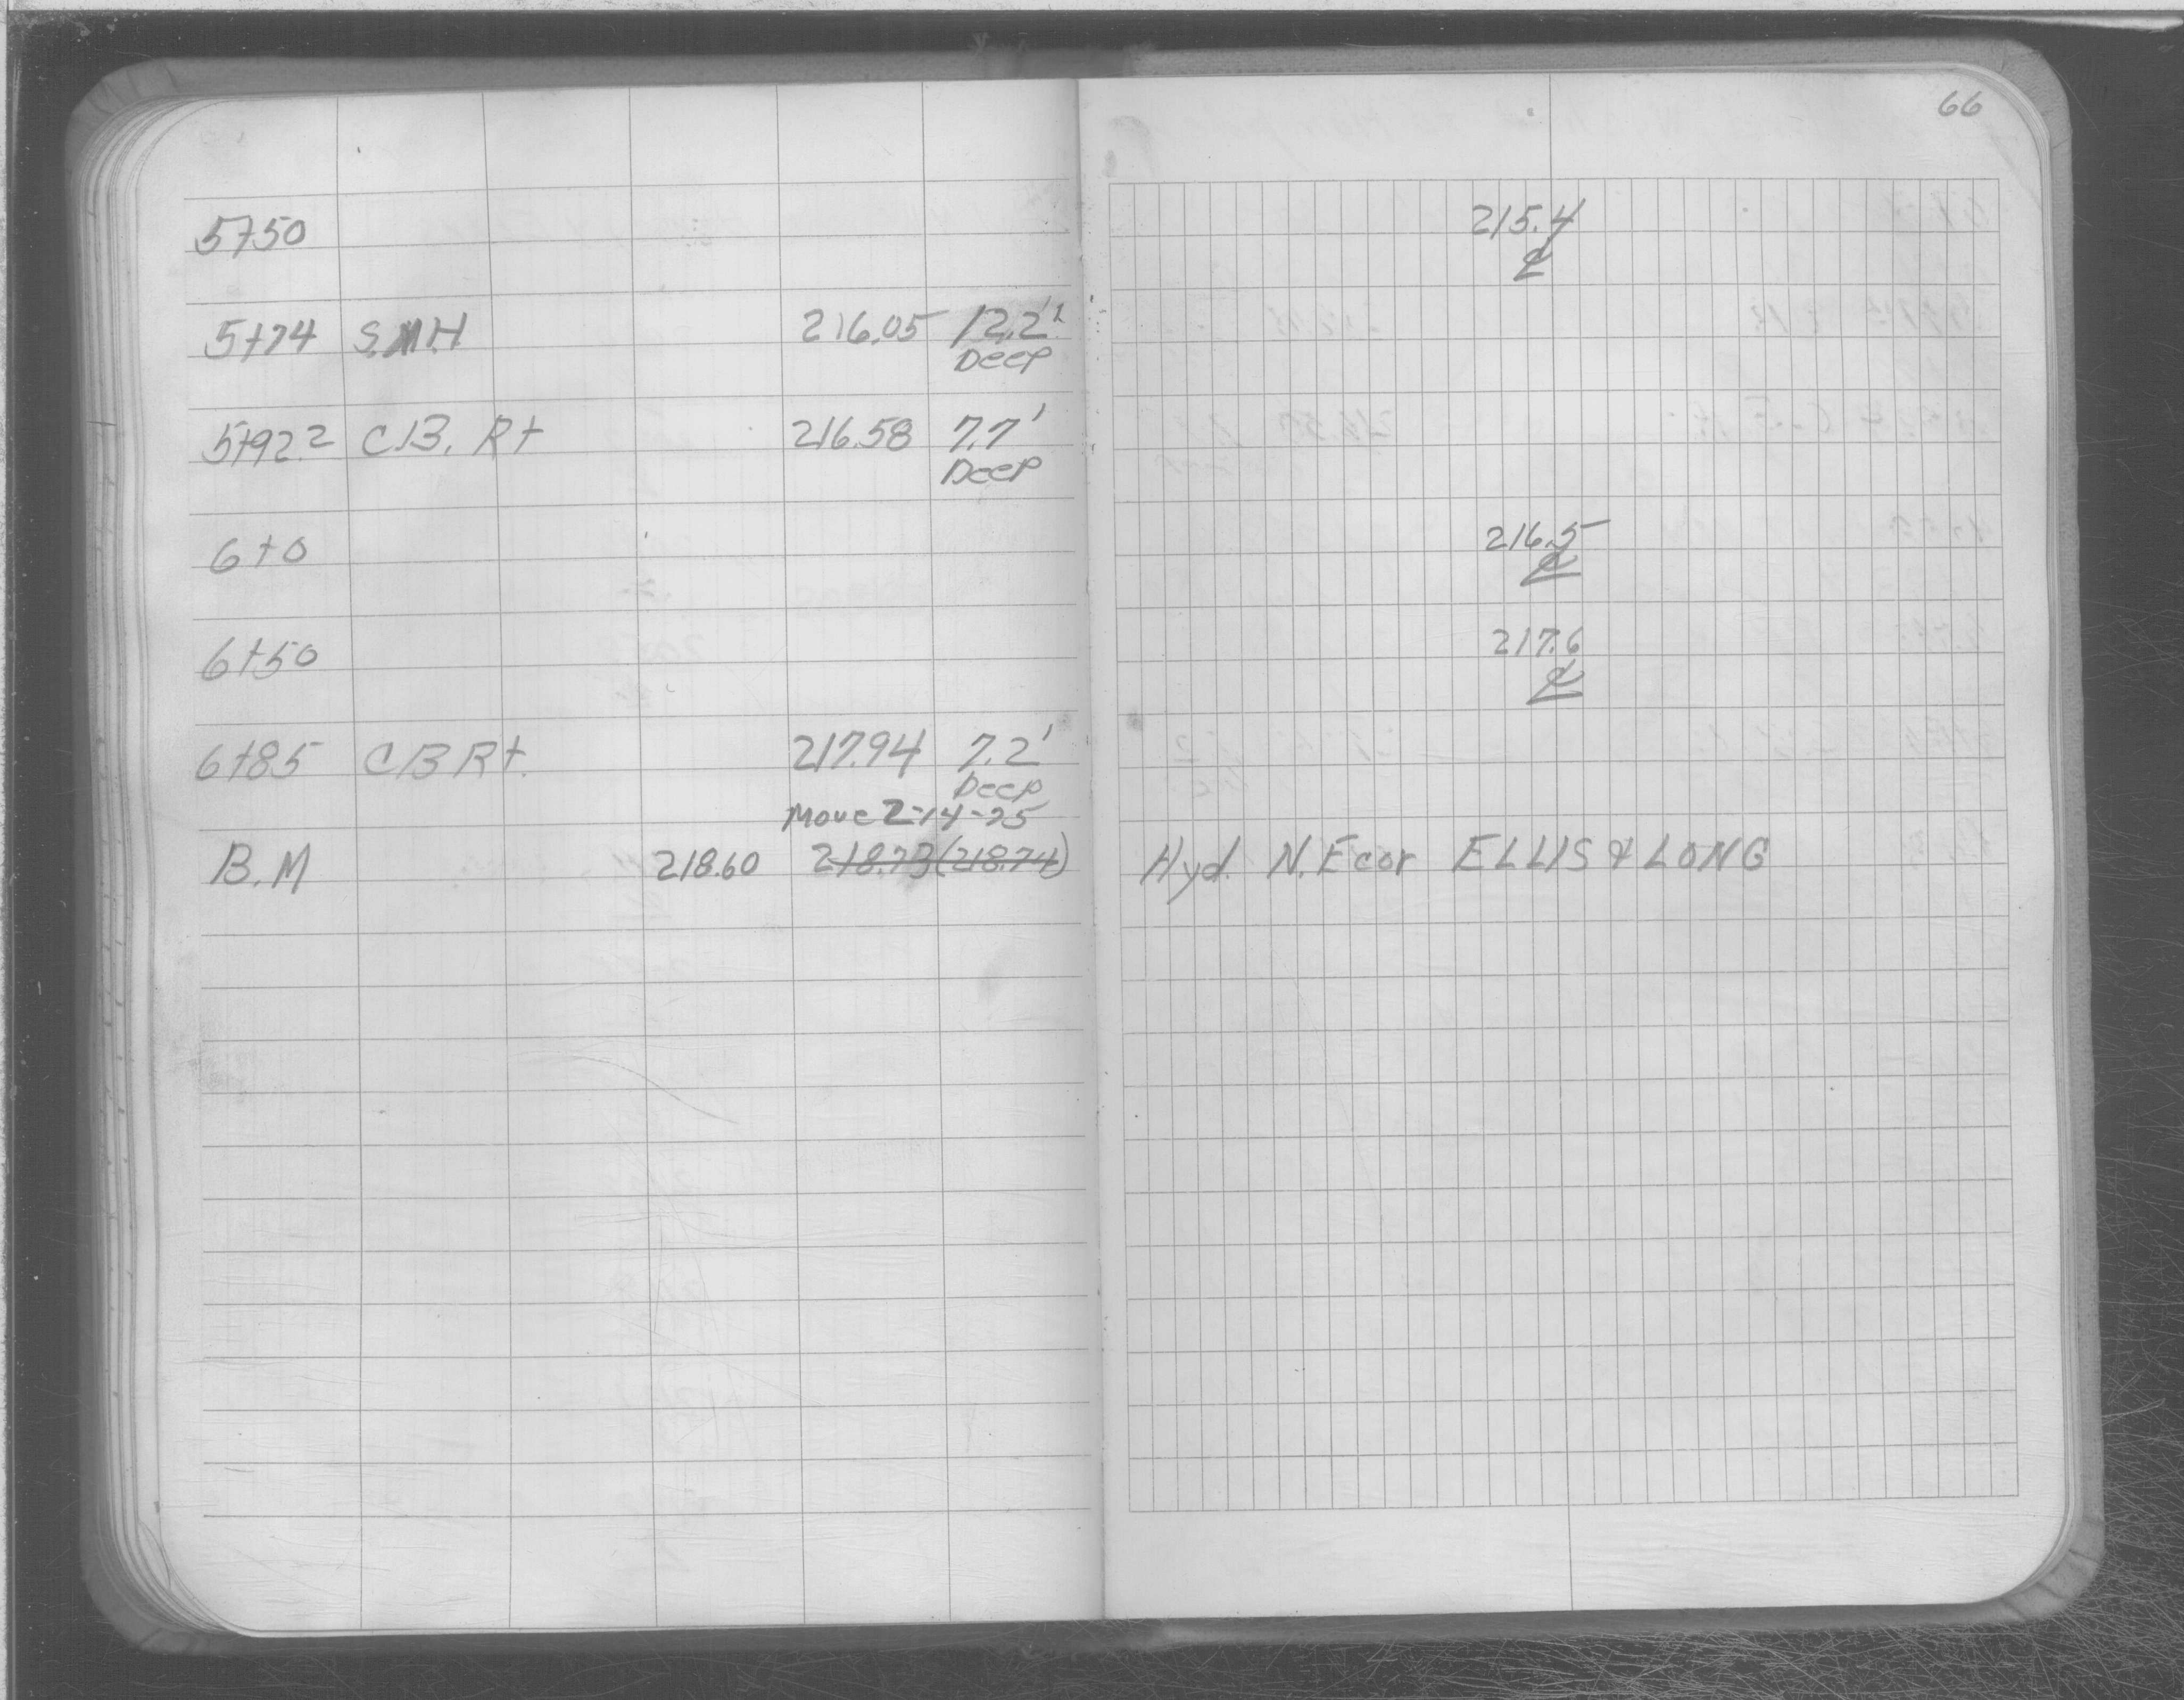 66
5+50 215.4
℄
5+74 S.M.H 216.05 12.2'
Deep
5+92.2 C.B. Rt 216.58 7.7'
Deep
6+0 216.5
℄
6+50 217.6
℄
6+85 CB Rt. 217.94 7.2'
Deep
Move 2-14-25
B.M 218.60 218.73 (218.74) Hyd. N.E cor ELLIS & LONG